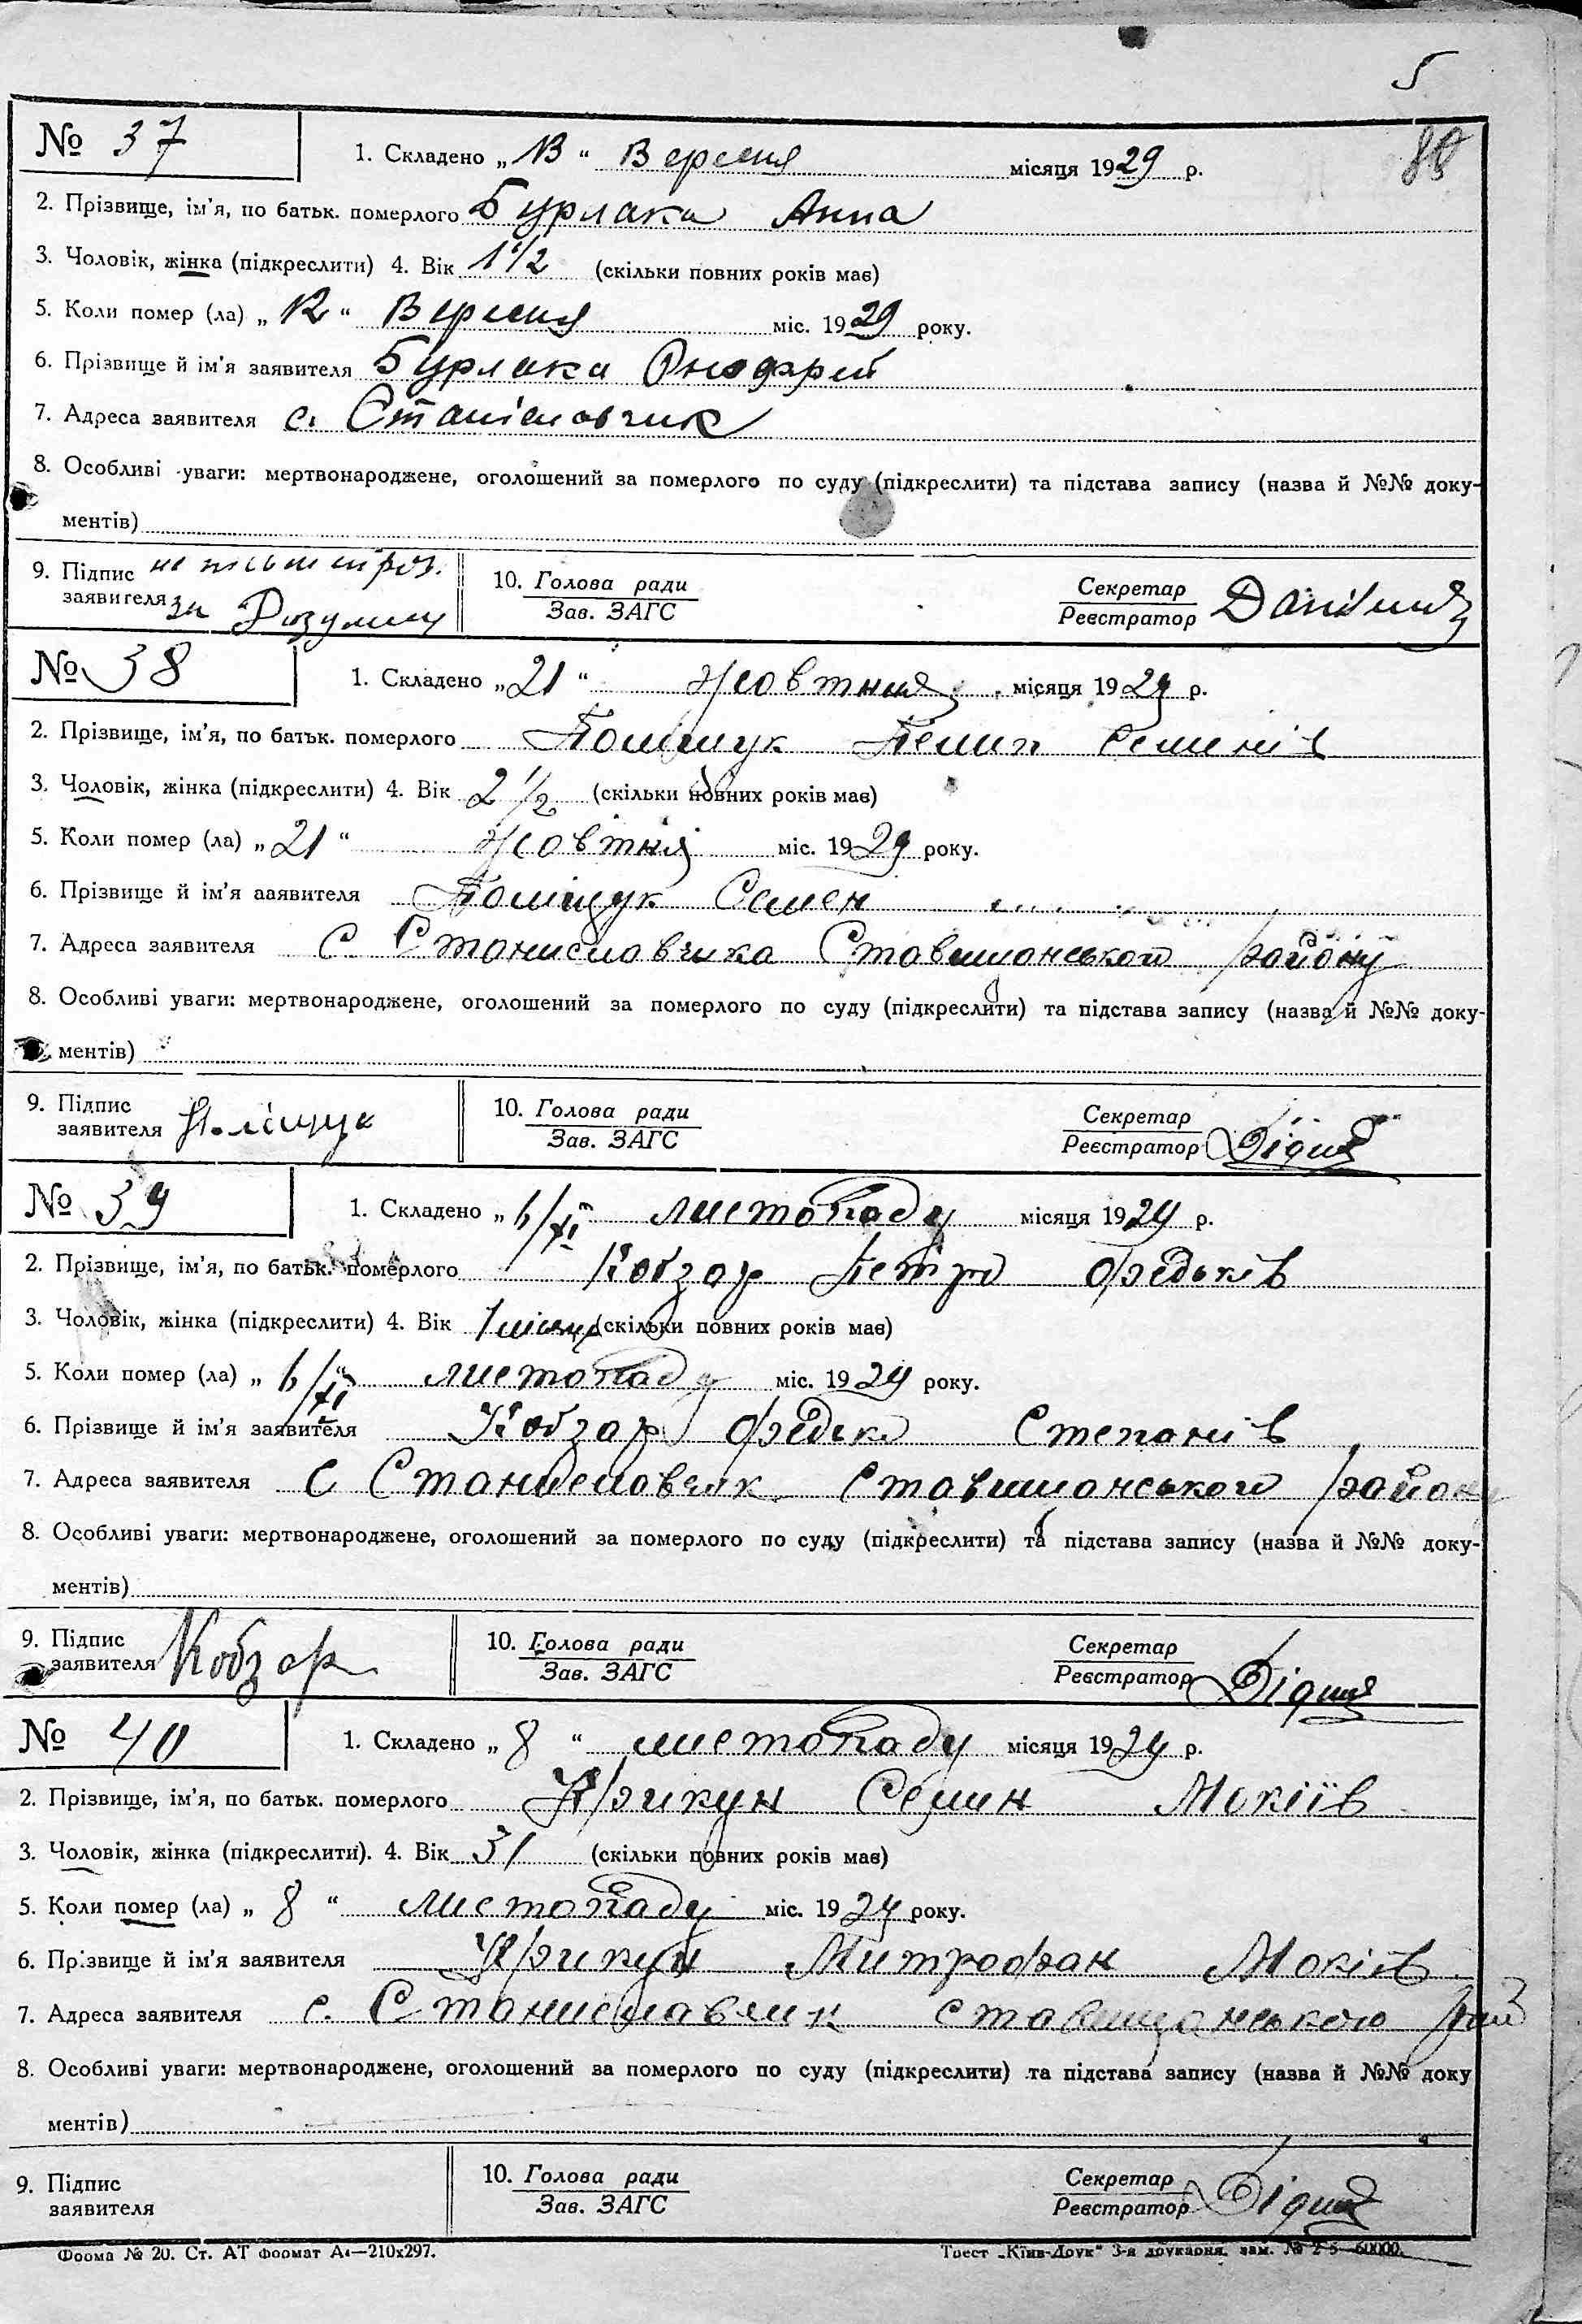 5
№ 37
1. Складено „ 13 “ Вересня місяця 1929 р.
80
2. Прізвище, ім'я, по батьк. померлого Бурлака Анна
3. Чоловік, жінка (підкреслити) 4. Вік 1 1/2 (скільки повних років має)
5. Коли помер (ла) „ 12 “ Вересня міс. 1929 року.
6. Прізвище й ім'я заявителя Бурлака Онофрій
7. Адреса заявителя с. Станіславчик
8. Особливі уваги: мертвонароджене, оголошений за померлого по суду (підкреслити) та підстава запису (назва й №№ доку-
ментів)
9. Підпис заявителя за
10. Голова ради
Зав. ЗАГС
Секретар
Реєстратор
№ 38
1. Складено „ 21 “ жовтня місяця 1929 р.
2. Прізвище, ім'я, по батьк. померлого Поліщук Пилип Семенів
3. Чоловік, жінка (підкреслити) 4. Вік 2 1/2 (скільки повних років має)
5. Коли помер (ла) „ 21 “ жовтня міс. 1929 року.
6. Прізвище й ім'я заявителя Поліщук Семен
7. Адреса заявителя с. Станиславчика Ставищанського району
8. Особливі уваги: мертвонароджене, оголошений за померлого по суду (підкреслити) та підстава запису (назва й №№ доку-
ментів)
9. Підпис заявителя Поліщук
10. Голова ради
Зав. ЗАГС
Секретар
Реєстратор Дідик
№ 39
1. Складено „ 6/XI “ листопаду місяця 1929 р.
2. Прізвище, ім'я, по батьк. померлого Кобзар Петро Федьків
3. Чоловік, жінка (підкреслити) 4. Вік 1 місяць (скільки повних років має)
5. Коли помер (ла) „ 6/XI “ листопаду міс. 1929 року.
6. Прізвище й ім'я заявителя Кобзар Федько Степанів
7. Адреса заявителя с Станиславчик Ставищанського району
8. Особливі уваги: мертвонароджене, оголошений за померлого по суду (підкреслити) та підстава запису (назва й №№ доку-
ментів)
9. Підпис заявителя Кобзар
10. Голова ради
Зав. ЗАГС
Секретар
Реєстратор Дідик
№ 40
1. Складено „ 8 “ листопаду місяця 1929 р.
2. Прізвище, ім'я, по батьк. померлого Крикун Семин Мокіїв
3. Чоловік, жінка (підкреслити). 4. Вік 31 (скільки повних років має)
5. Коли помер (ла) „ 8 “ листопаду міс. 1929 року.
6. Прізвище й ім'я заявителя Крикун Митрофан Мокіїв
7. Адреса заявителя с. Станиславчик Ставищанського рай
8. Особливі уваги: мертвонароджене, оголошений за померлого по суду (підкреслити) та підстава запису (назва й №№ доку
ментів)
9. Підпис заявителя
10. Голова ради
Зав. ЗАГС
Секретар
Реєстратор Дідик
Форма № 20. Ст. АТ формат А4—210х297.
Трест „Київ-Друк“ 3-я друкарня, зам. №